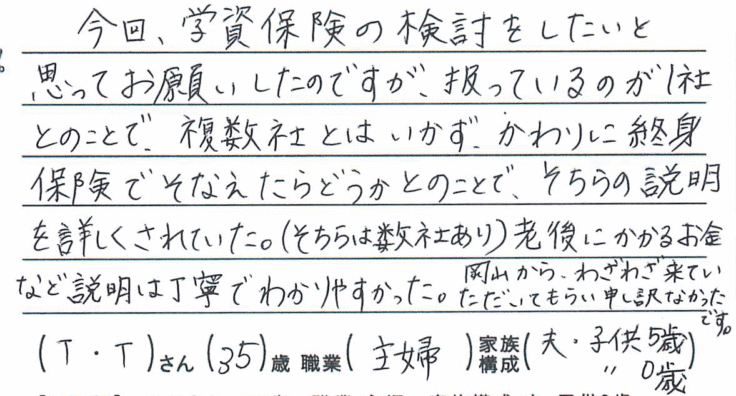 今回、学資保険の検討をしたいと
思ってお願いしたのですが、扱っているのが1社
とのことで、複数社とはいかず、かわりに終身
保険でそなえたらどうかとのことで、そちらの説明
を詳しくされていた。(そちらは数社あり)老後にかかるお金
など説明は丁寧でわかりやすかった。
岡山から、わざわざ来てい
ただいてもらい申し訳なかった
です。
(T・T)さん(35)歳 職業(主婦)家族構成(夫・子供5歳
〃 0歳)